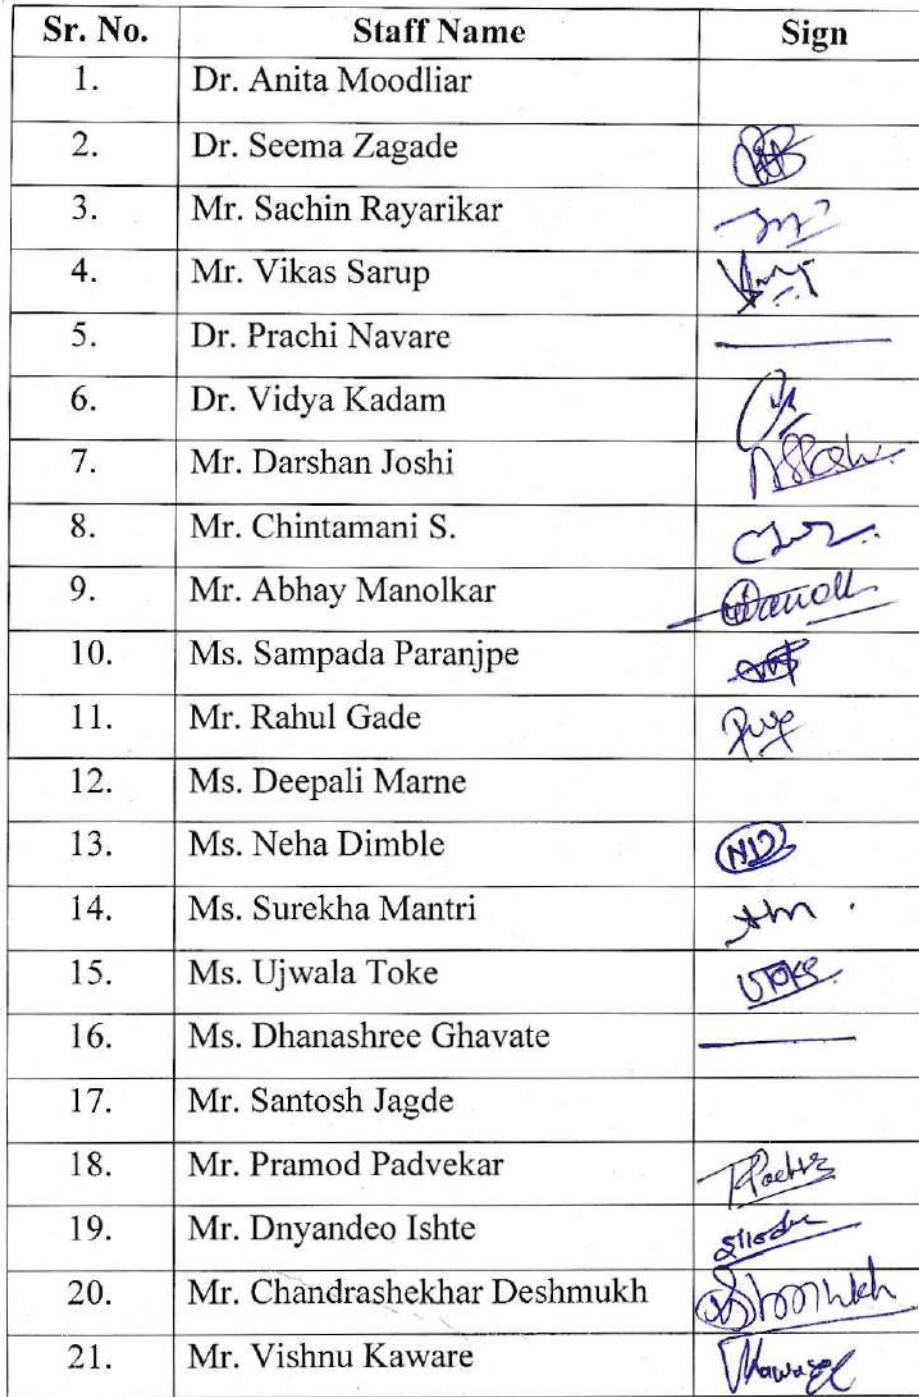 Sr. No. Staff Name Sign
1. Dr. Anita Moodliar
2. Dr. Seema Zagade
3. Mr. Sachin Rayarikar
4. Mr. Vikas Sarup
5. Dr. Prachi Navare
6. Dr. Vidya Kadam
7. Mr. Darshan Joshi
8. Mr. Chintamani S.
9. Mr. Abhay Manolkar
10. Ms. Sampada Paranjpe
11. Mr. Rahul Gade
12. Ms. Deepali Marne
13. Ms. Neha Dimble ND
14. Ms. Surekha Mantri
15. Ms. Ujwala Toke UToke
16. Ms. Dhanashree Ghavate
17. Mr. Santosh Jagde
18. Mr. Pramod Padvekar
19. Mr. Dnyandeo Ishte
20. Mr. Chandrashekhar Deshmukh
21. Mr. Vishnu Kaware